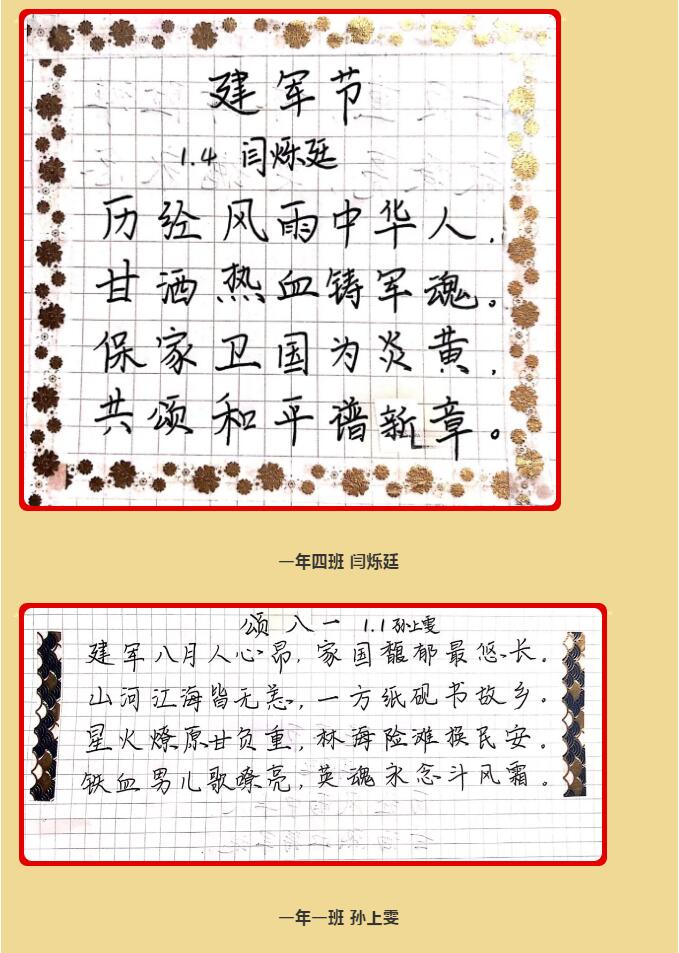 建军节
1.4 闫烁廷
历经风雨中华人,
甘洒热血铸军魂。
保家卫国为炎黄,
共颂和平谱新章。
一年四班 闫烁廷
颂八一 1.1 孙上雯
建军八月人心昂,家国馥郁最悠长。
山河江海皆无恙,一方纸砚书故乡。
星火燎原甘负重,林海险滩换民安。
铁血男儿歌嘹亮,英魂永念斗风霜。
一年一班 孙上雯